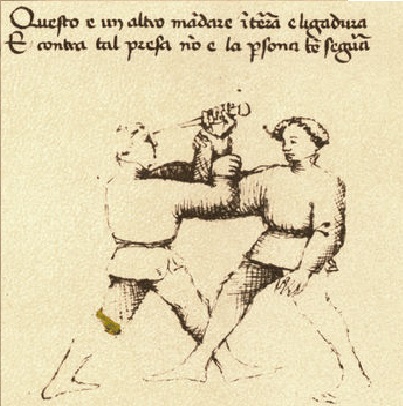 Questo e un altro mādare ī terā e ligadura
E contra tal presa nō e la p̱sona bē seguā